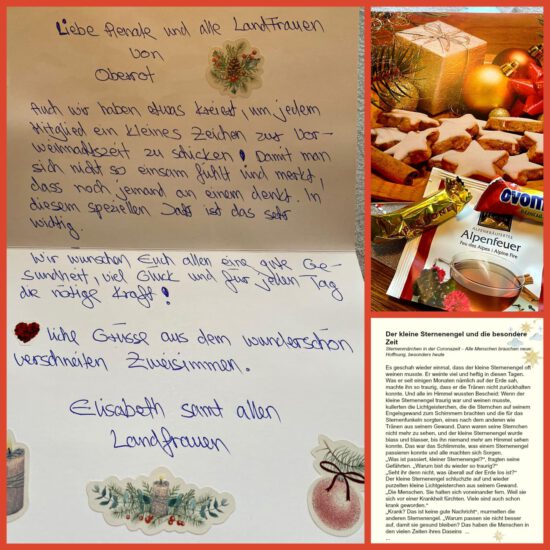 Liebe Renate und alle LandFrauen
von
Oberrot
Auch wir haben etwas kreiert, um jedem
Mitglied ein kleines Zeichen zur Vor-
weihnachtszeit zu schicken! Damit man
sich nicht so einsam fühlt und merkt,
dass noch jemand an einem denkt. In
diesem speziellen Jahr ist das sehr
wichtig.
Wir wünschen Euch allen eine gute Ge-
sundheit, viel Glück und für jeden Tag
die nötige Kraft!
liche Grüsse aus dem wunderschön
verschneiten Zweisimmen.
Elisabeth samt allen
Landfrauen
ovom
Alpenfeuer
Feu des Alpes | Alpine Fire
Der kleine Sternenengel und die besondere
Zeit
Sternenmärchen in der Coronazeit – Alle Menschen brauchen neue
Hoffnung, besonders heute
Es geschah wieder einmal, dass der kleine Sternenengel oft
weinen musste. Er weinte viel und heftig in diesen Tagen.
Was er seit einigen Monaten nämlich auf der Erde sah,
machte ihn so traurig, dass er die Tränen nicht zurückhalten
konnte. Und alle im Himmel wussten Bescheid: Wenn der
kleine Sternenengel traurig war und weinen musste,
kullerten die Lichtgeisterchen, die die Sternchen auf seinem
Engelsgewand zum Schimmern brachten und die für das
Sternenfunkeln sorgten, eines nach dem anderen wie
Tränen aus seinem Gewand. Dann waren seine Sternchen
nicht mehr zu sehen, und der kleine Sternenengel wurde
blass und blasser, bis ihn niemand mehr am Himmel sehen
konnte. Das war das Schlimmste, was einem Sternenengel
passieren konnte und alle machten sich Sorgen.
„Was ist passiert, kleiner Sternenengel?“, fragten seine
Gefährten. „Warum bist du wieder so traurig?“
„Seht ihr denn nicht, was überall auf der Erde los ist?“
Der kleine Sternenengel schluchzte auf und wieder
purzelten kleine Lichtgeisterchen aus seinem Gewand.
„Die Menschen. Sie halten sich voneinander fern. Weil sie
sich vor einer Krankheit fürchten. Viele sind auch schon
krank geworden.“
„Krank? Das ist keine gute Nachricht“, murmelten die
anderen Sternenengel. „Warum passen sie nicht besser
auf, damit sie gesund bleiben? Das haben die Menschen in
den vielen Zeiten ihres Daseins ...
...